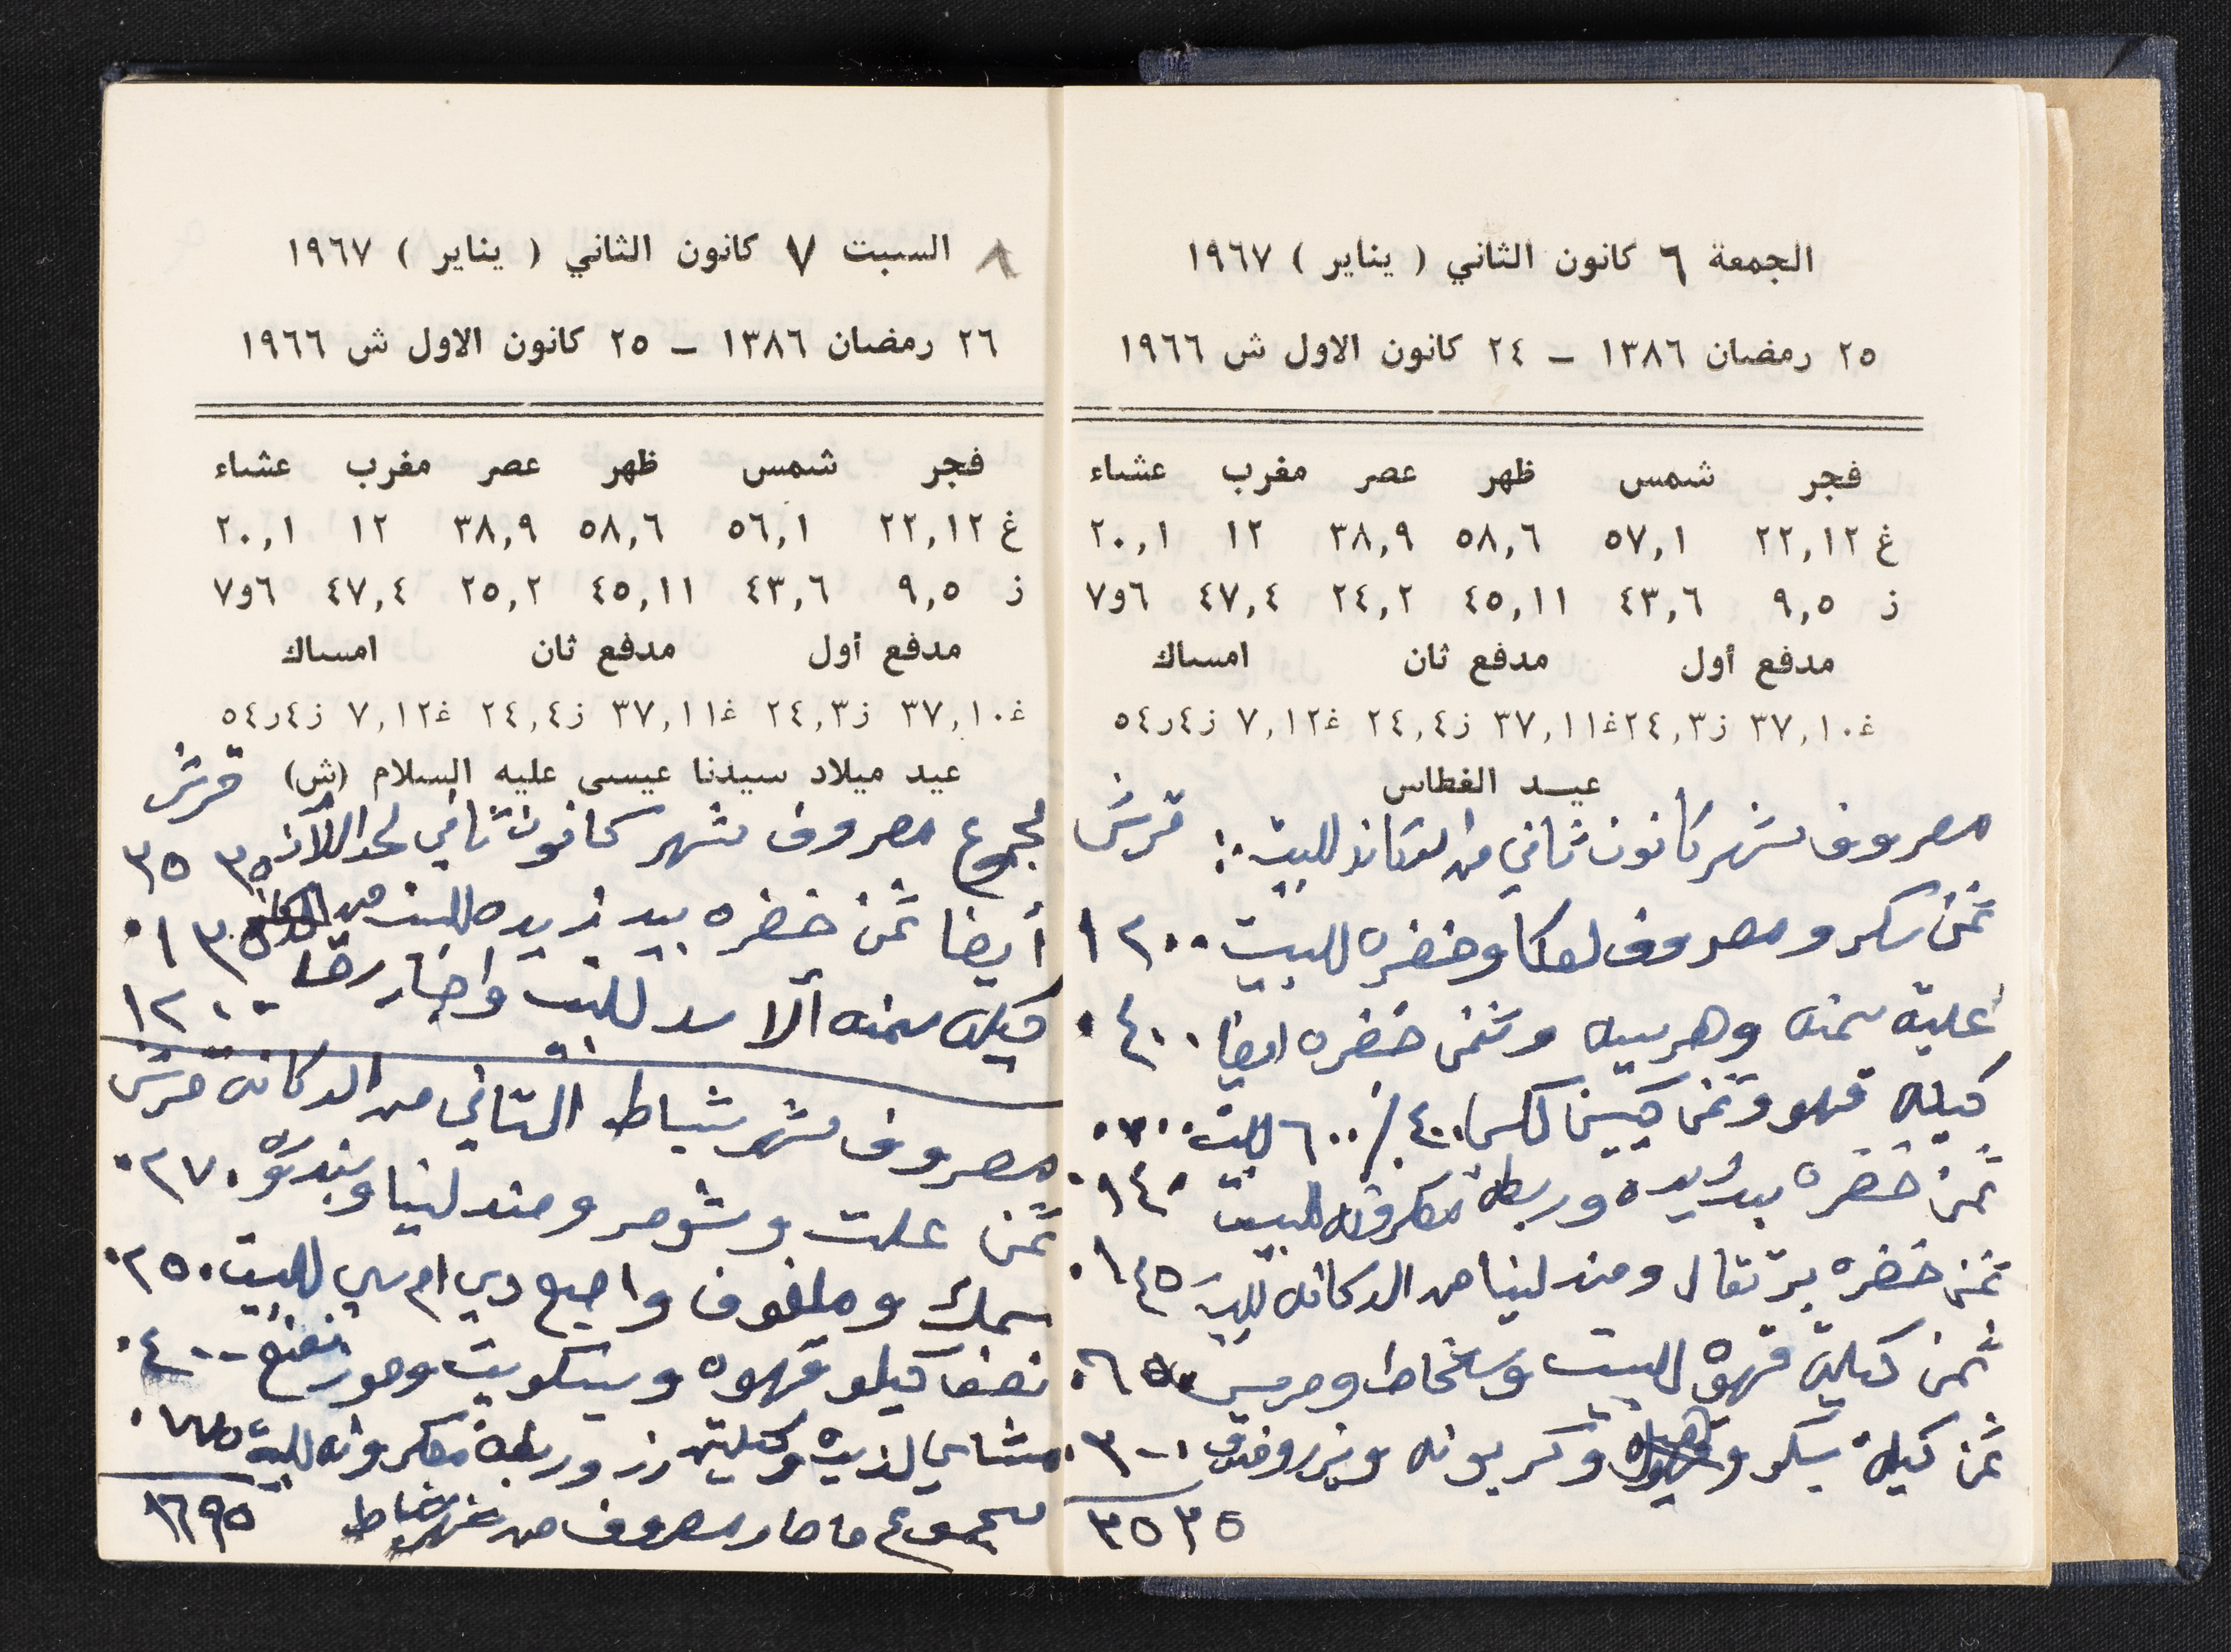 الجمعة ٦ كانون الثاني ( يناير ) ١٩٦٧
٢٥ رمضان ١٣٨٦ – ٢٤ كانون الاول ش ١٩٦٦
فجر شمس ظهر عصر مغرب عشاء
غ ٢٢,١٢ ٥٧,١ ٥٨,٦ ٣٨,٩ ١٢ ٢٠,١
ز ٩,٥ ٤٣,٦ ٤٥,١١ ٢٤,٢ ٤٧,٤ ٦و٧
مدفع أول مدفع ثان امساك
غ٣٧,١٠ ز٢٤,٣ غ٣٧,١١ ز٢٤,٤ غ٧,١٢ ز٤ر٥٤
عيد الغطاس
مصروف شهر كانون ثاني من للبيت : قرش
ثمن سكر ومصروف لعكا وخضره للبيت ١٢٠٠
علبة سمنه وهريسه وثمن خضره ايضا ٠٤٠٠
كيله قهوه وثمن ٤٠٠ / ٦٠٠ للبيت ٠٧٠٠
ثمن خضره بندوره وربطة مكرونه للبيت ٠١٤٠
ثمن خضره برتقال ومندلينا من الدكانه للبيت ٠١٤٥
ثمن كيلة قهوة للبيت ٠٦٥٠
ثمن كيلة سكر وكربونه ٠٣٠٠
٣٥٣٥
السبت ٧ كانون الثاني ( يناير ) ١٩٦٧
٨
٢٦ رمضان ١٣٨٦ – ٢٥ كانون الاول ش ١٩٦٦
فجر شمس ظهر عصر مغرب عشاء
غ ٢٢,١٢ ٥٦,١ ٥٨,٦ ٣٨,٩ ١٢ ٢٠,١
ز ٩,٥ ٤٣,٦ ٤٥,١١ ٢٥,٢ ٤٧,٤ ٦و٧
مدفع أول مدفع ثان امساك
غ٣٧,١٠ ز٢٤,٣ غ٣٧,١١ ز٢٤,٤ غ٧,١٢ ز٤ر٥٤
عيد ميلاد سيدنا عيسى عليه السلام (ش) قرش
مجموع مصروف شهر كانون ثاني لحد الآن ٣٥٣٥
أيضا ثمن خضره للبيت من ٠١٣٥
كيله سمنه للبيت ١٢٠٠
مصروف شهر شباط الثاني من الدكانه قرش
ثمن علت وشومر ومندلينا وبندوره ٠٢٧٠
سمك وملفوف للبيت ٠٢٥٠
نصف كيلو قهوه وبسكويت وموز ٠٤٠٠
رز وربطة مكرونه للبيت
مجموع ما صار مصروف من شهر شباط ١٦٩٥